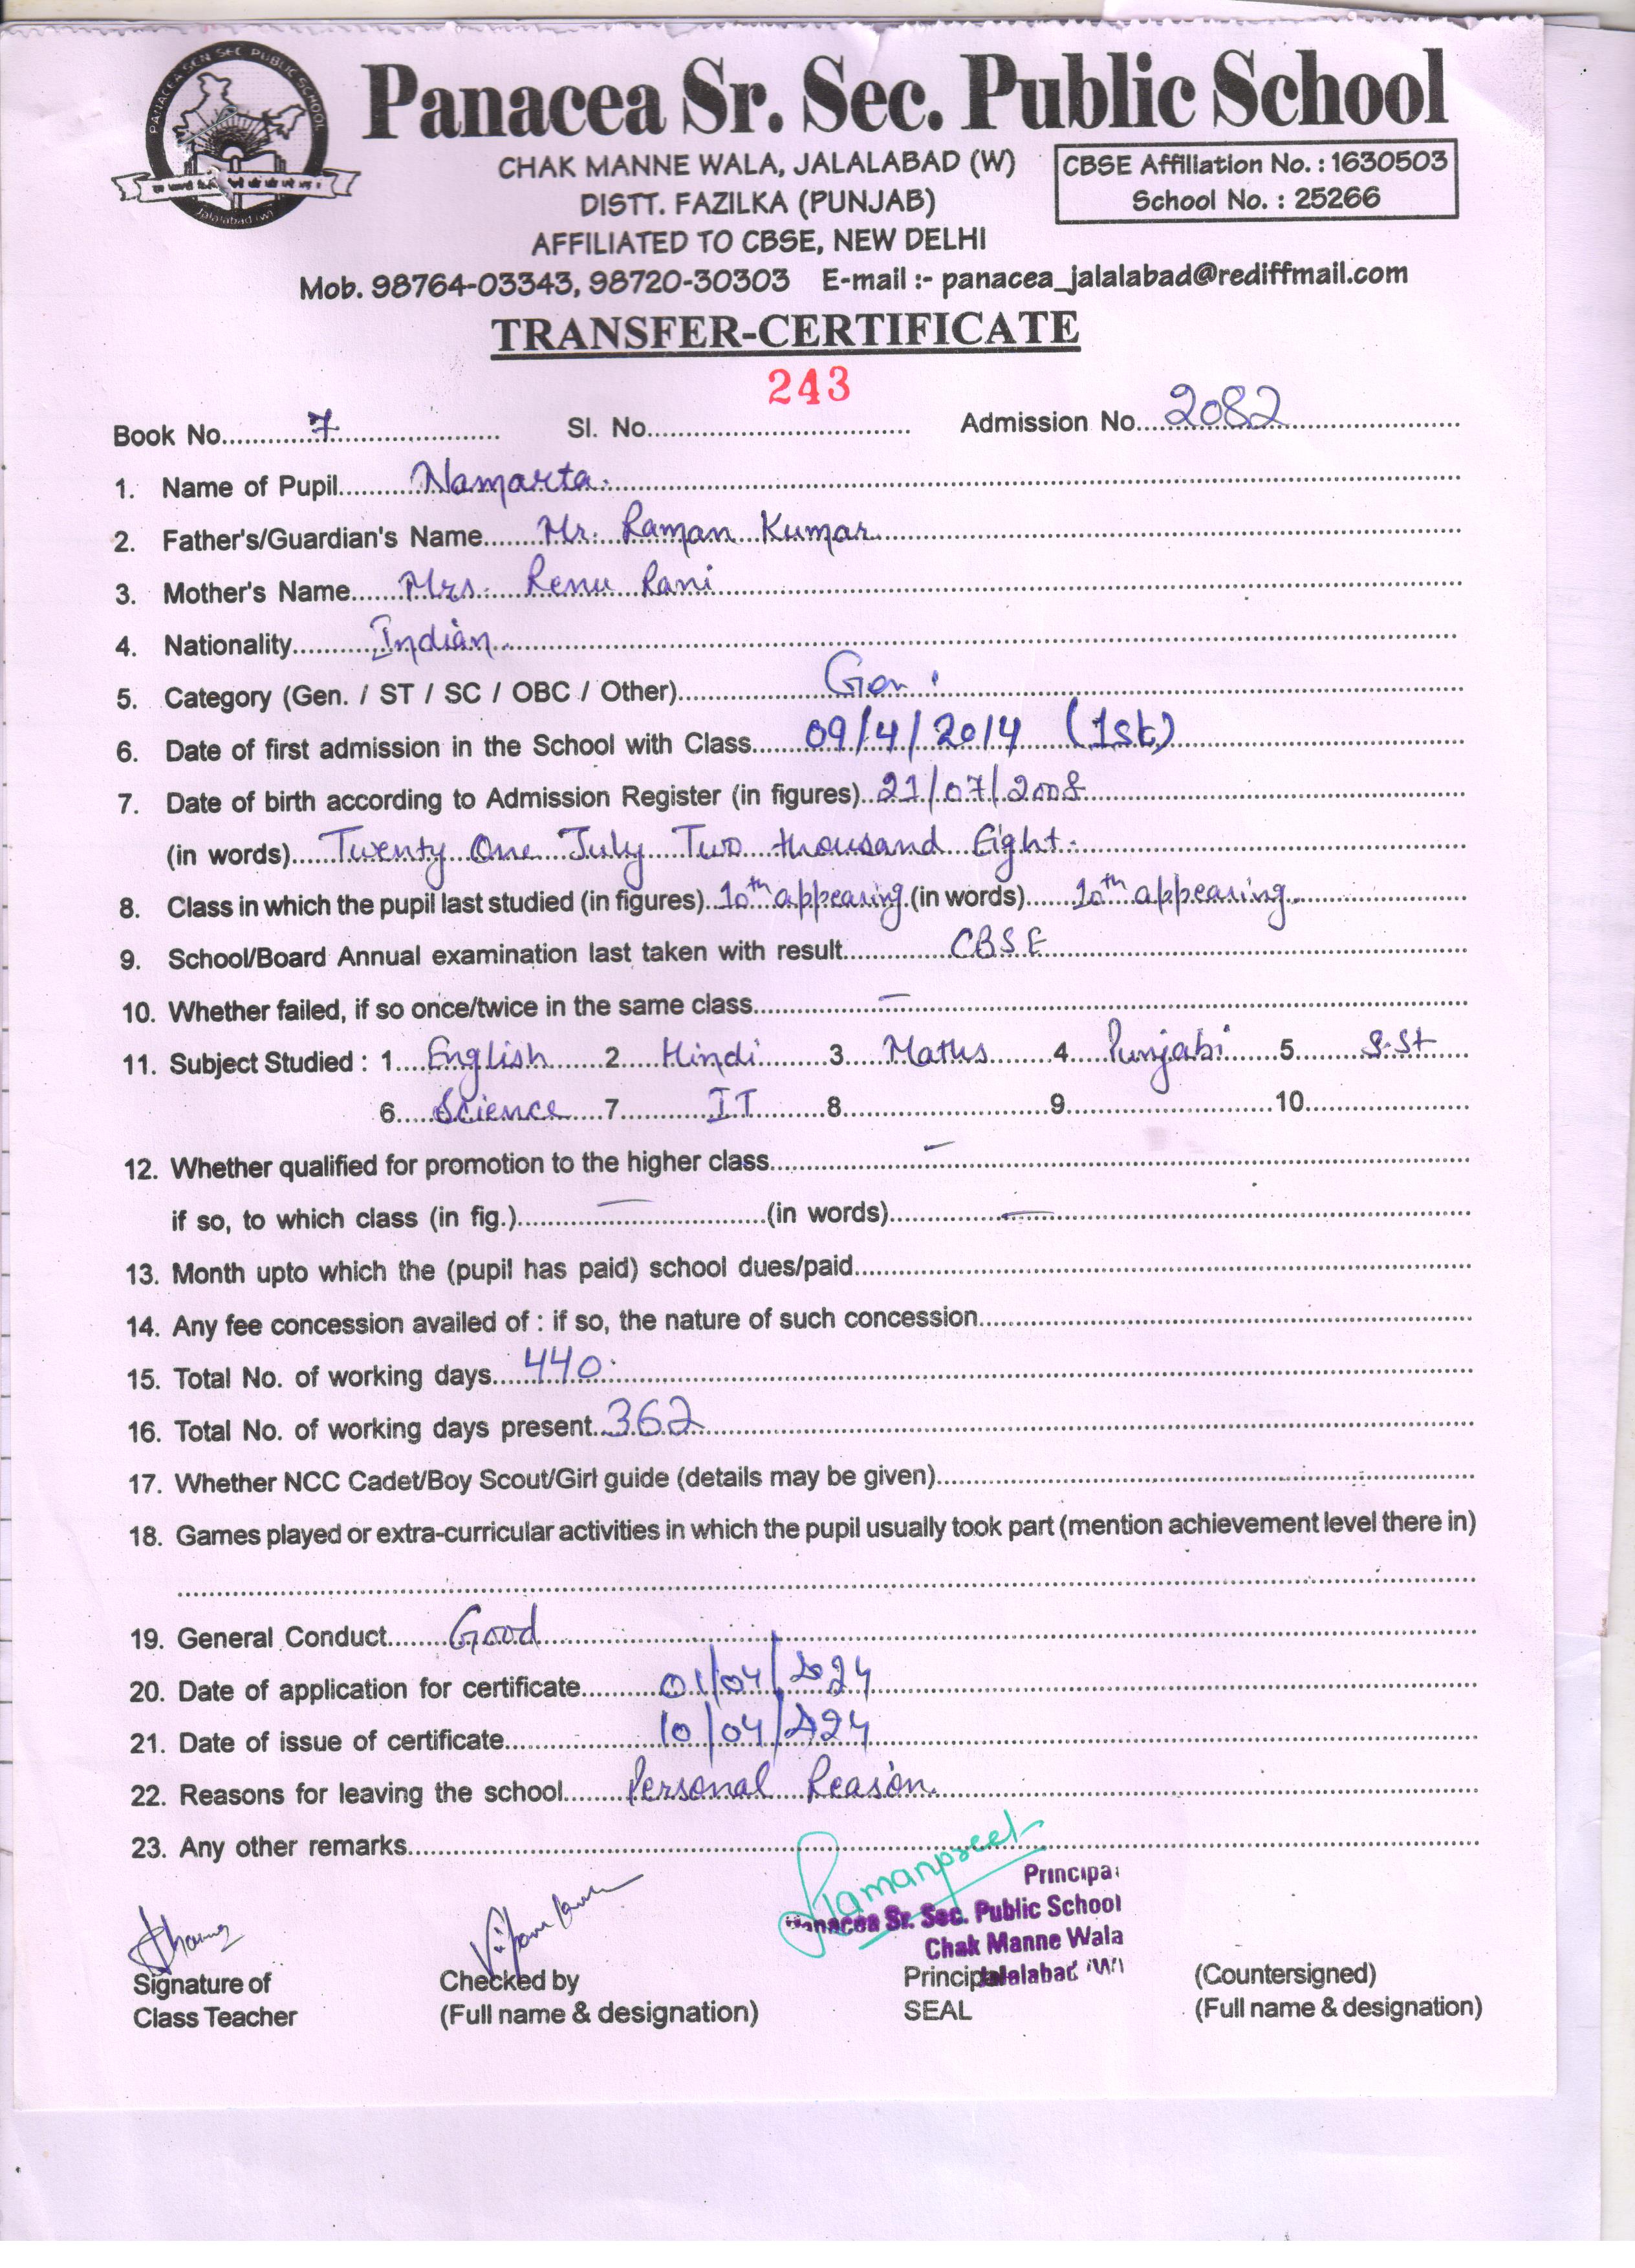 PANACEA SEN SEC PUBLIC SCHOOL
Jalalabad (W)
Panacea Sr. Sec. Public School
CHAK MANNE WALA, JALALABAD (W)
DISTT. FAZILKA (PUNJAB)
AFFILIATED TO CBSE, NEW DELHI
CBSE Affiliation No. : 1630503
School No. : 25266
Mob. 98764-03343, 98720-30303 E-mail :- panacea_jalalabad@rediffmail.com
TRANSFER-CERTIFICATE
243
Book No. 7 Sl. No. Admission No. 2082
1. Name of Pupil Namarta.
2. Father's/Guardian's Name Mr. Raman Kumar
3. Mother's Name Mrs. Renu Rani
4. Nationality Indian
5. Category (Gen. / ST / SC / OBC / Other) Gen.
6. Date of first admission in the School with Class 09/4/2014 (1st)
7. Date of birth according to Admission Register (in figures) 21/07/2008
(in words) Twenty One July Two thousand Eight.
8. Class in which the pupil last studied (in figures) 10th appearing (in words) 10th appearing
9. School/Board Annual examination last taken with result CBSE
10. Whether failed, if so once/twice in the same class —
11. Subject Studied : 1 English 2 Hindi 3 Maths 4 Punjabi 5 S.St
6 Science 7 IT 8 9 10
12. Whether qualified for promotion to the higher class —
if so, to which class (in fig.) — (in words) —
13. Month upto which the (pupil has paid) school dues/paid
14. Any fee concession availed of : if so, the nature of such concession
15. Total No. of working days 440.
16. Total No. of working days present 362
17. Whether NCC Cadet/Boy Scout/Girl guide (details may be given)
18. Games played or extra-curricular activities in which the pupil usually took part (mention achievement level there in)
19. General Conduct Good
20. Date of application for certificate 01/04/2024
21. Date of issue of certificate 10/04/2024
22. Reasons for leaving the school Personal Reason
23. Any other remarks
Ramanpreet
Principal
Panacea Sr. Sec. Public School
Chak Manne Wala
Jalalabad (W)
Signature of Checked by Principal (Countersigned)
Class Teacher (Full name & designation) SEAL (Full name & designation)